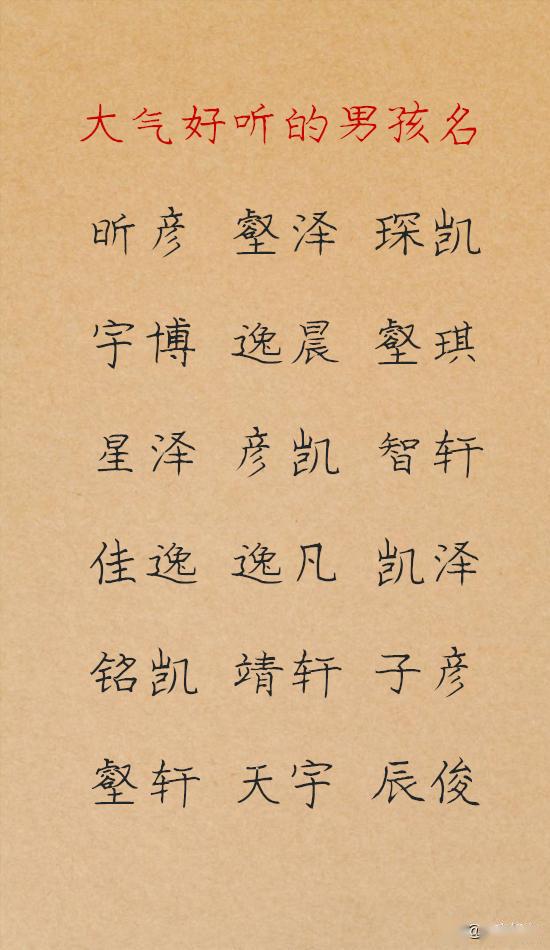 大气好听的男孩名
昕彦 壑泽 琛凯
宇博 逸晨 壑琪
星泽 彦凯 智轩
佳逸 逸凡 凯泽
铭凯 靖轩 子彦
壑轩 天宇 辰俊
@